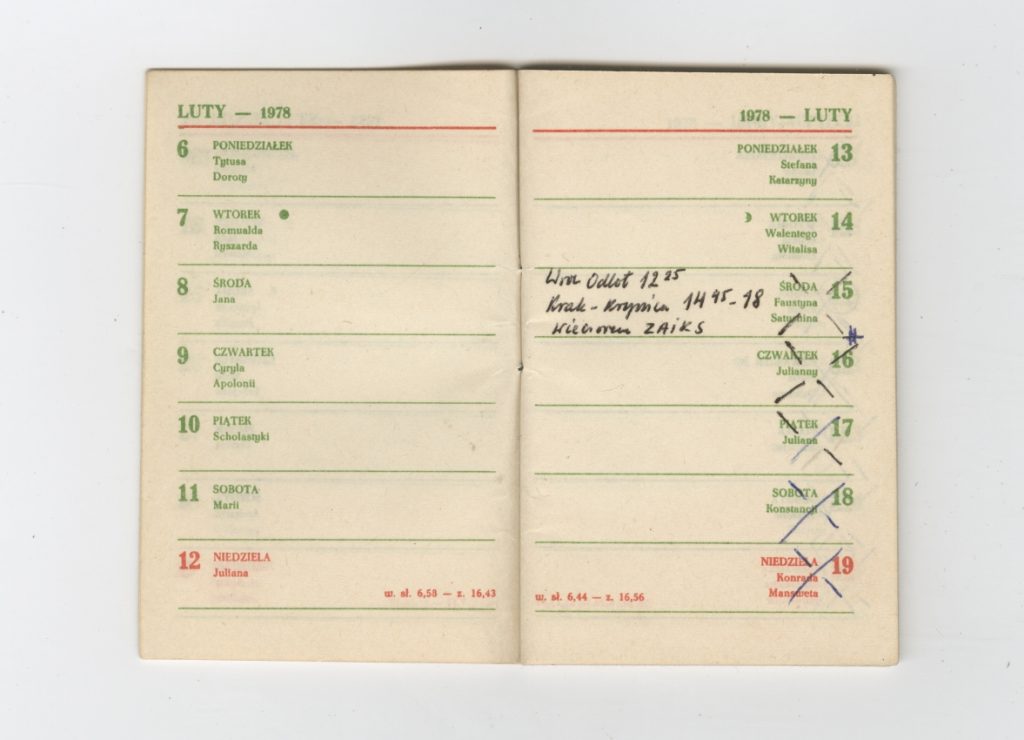 LUTY — 1978
6 PONIEDZIAŁEK
Tytusa
Doroty
7 WTOREK
Romualda
Ryszarda
8 ŚRODA
Jana
9 CZWARTEK
Cyryla
Apolonii
10 PIĄTEK
Scholastyki
11 SOBOTA
Marii
12 NIEDZIELA
Juliana
w. sł. 6,58 — z. 16,43
1978 — LUTY
PONIEDZIAŁEK 13
Stefana
Katarzyny
WTOREK 14
Walentego
Witalisa
Odlot 12 25
Krak - Krynica 14 45 - 18
Wieczorem ZAiKS
ŚRODA 15
Faustyna
Saturnina
CZWARTEK 16
Julianny
PIĄTEK 17
Juliana
SOBOTA 18
Konstancji
NIEDZIELA 19
Konrada
Mansweta
w. sł. 6,44 — z. 16,56